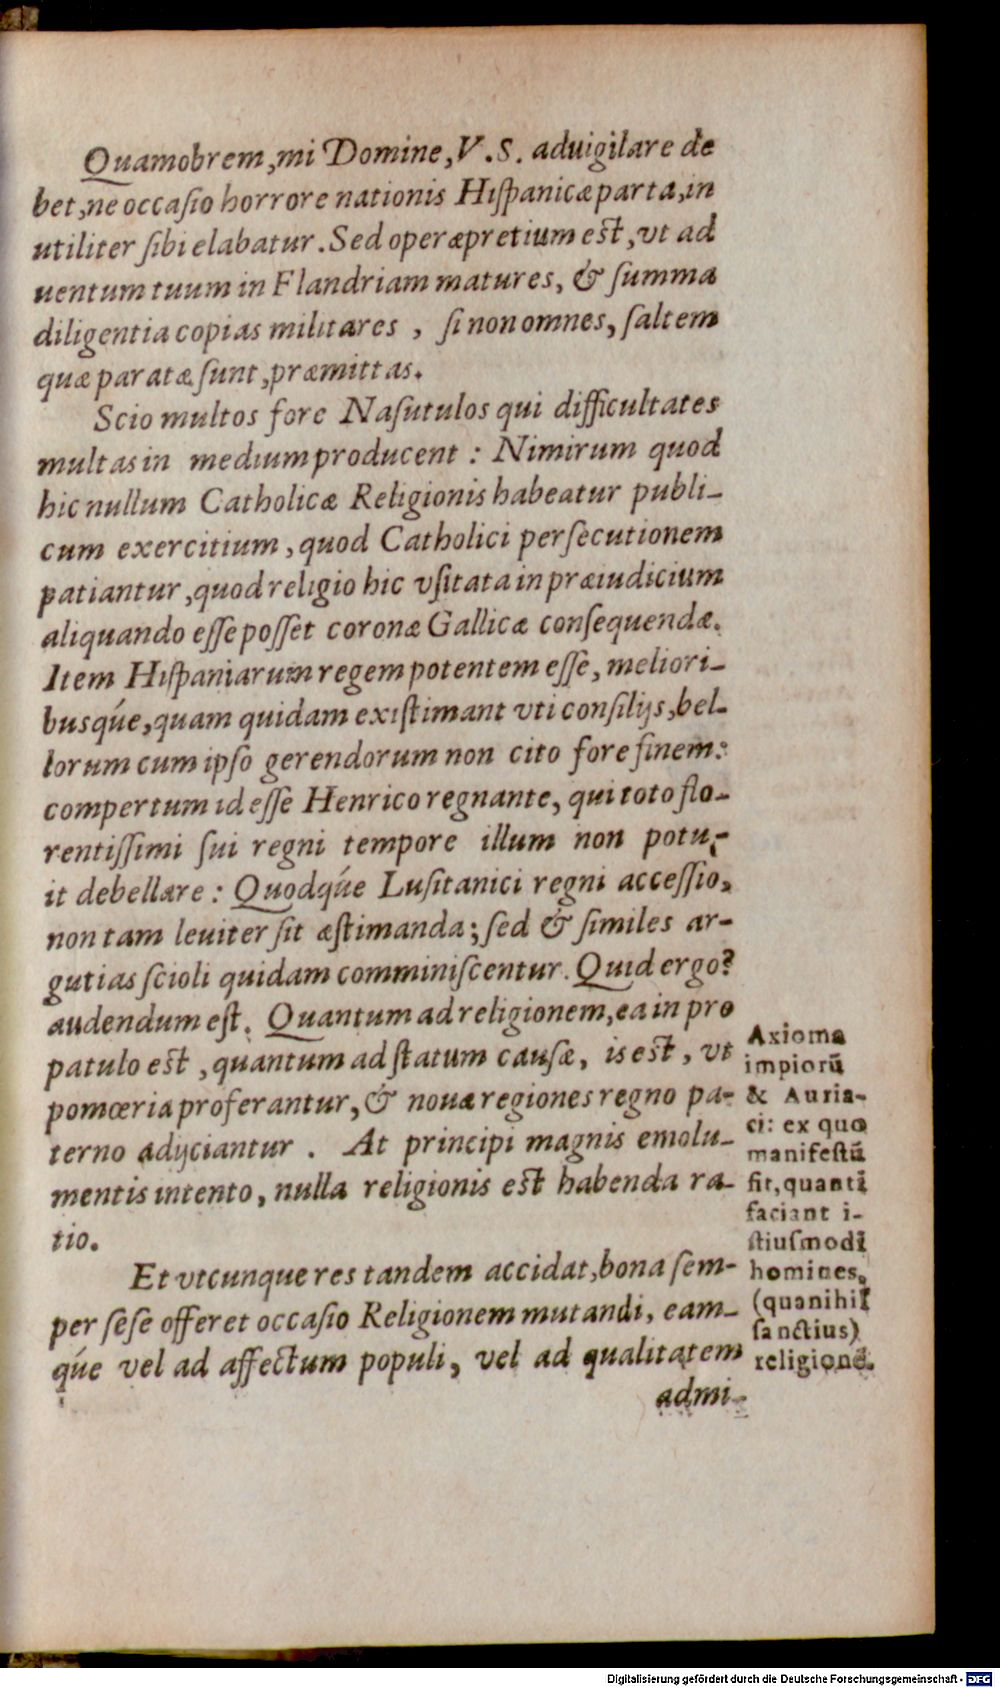 Quamobrem, mi Domine, V. S. aduigilare de
bet, ne occaſio horrore nationis Hiſpanicæ parta, in
utiliter ſibi elabatur. Sed operæpretium est, vt ad
uentum tuum in Flandriam matures, & ſumma
diligentia copias militares , ſi non omnes, ſaltem
quæ paratæ ſunt, præmittas.
Scio multos fore Naſutulos qui difficultates
multas in medium producent : Nimirum quod
hic nullum Catholicæ Religionis habeatur publi-
cum exercitium, quod Catholici perſecutionem
patiantur, quod religio hic vſitata in præiudicium
aliquando eſſe poſſet coronæ Gallicæ conſequendæ.
Item Hiſpaniarum regem potentem eſſe, meliori-
busq́ue, quam quidam exiſtimant vti conſilijs, bel-
lorum cum ipſo gerendorum non cito fore finem:
compertum id eſſe Henrico regnante, qui toto flo-
rentiſſimi ſui regni tempore illum non potu-
it debellare : Quodq́ue Luſitanici regni acceſſio,
non tam leuiter ſit æſtimanda; ſed & ſimiles ar-
gutias ſcioli quidam comminiſcentur. Quid ergo?
audendum eſt. Quantum ad religionem, ea in pro
patulo est, quantum ad ſtatum cauſæ, is est, vt
pomœria proferantur, & nouæ regiones regno pa-
terno adijciantur . At principi magnis emolu-
mentis intento, nulla religionis est habenda ra-
tio.
Et vtcunque res tandem accidat, bona ſem-
per ſeſe offeret occaſio Religionem mutandi, eam-
q́ue vel ad affectum populi, vel ad qualitatem
admi-
Axioma
impiorū
& Auria-
ci: ex quo
manifeſtū
fit, quanti
faciant i-
ſtiuſmodi
homines,
(qua nihil
ſanctius)
religionē.
Digitalisierung gefördert durch die Deutsche Forschungsgemeinschaft - DFG